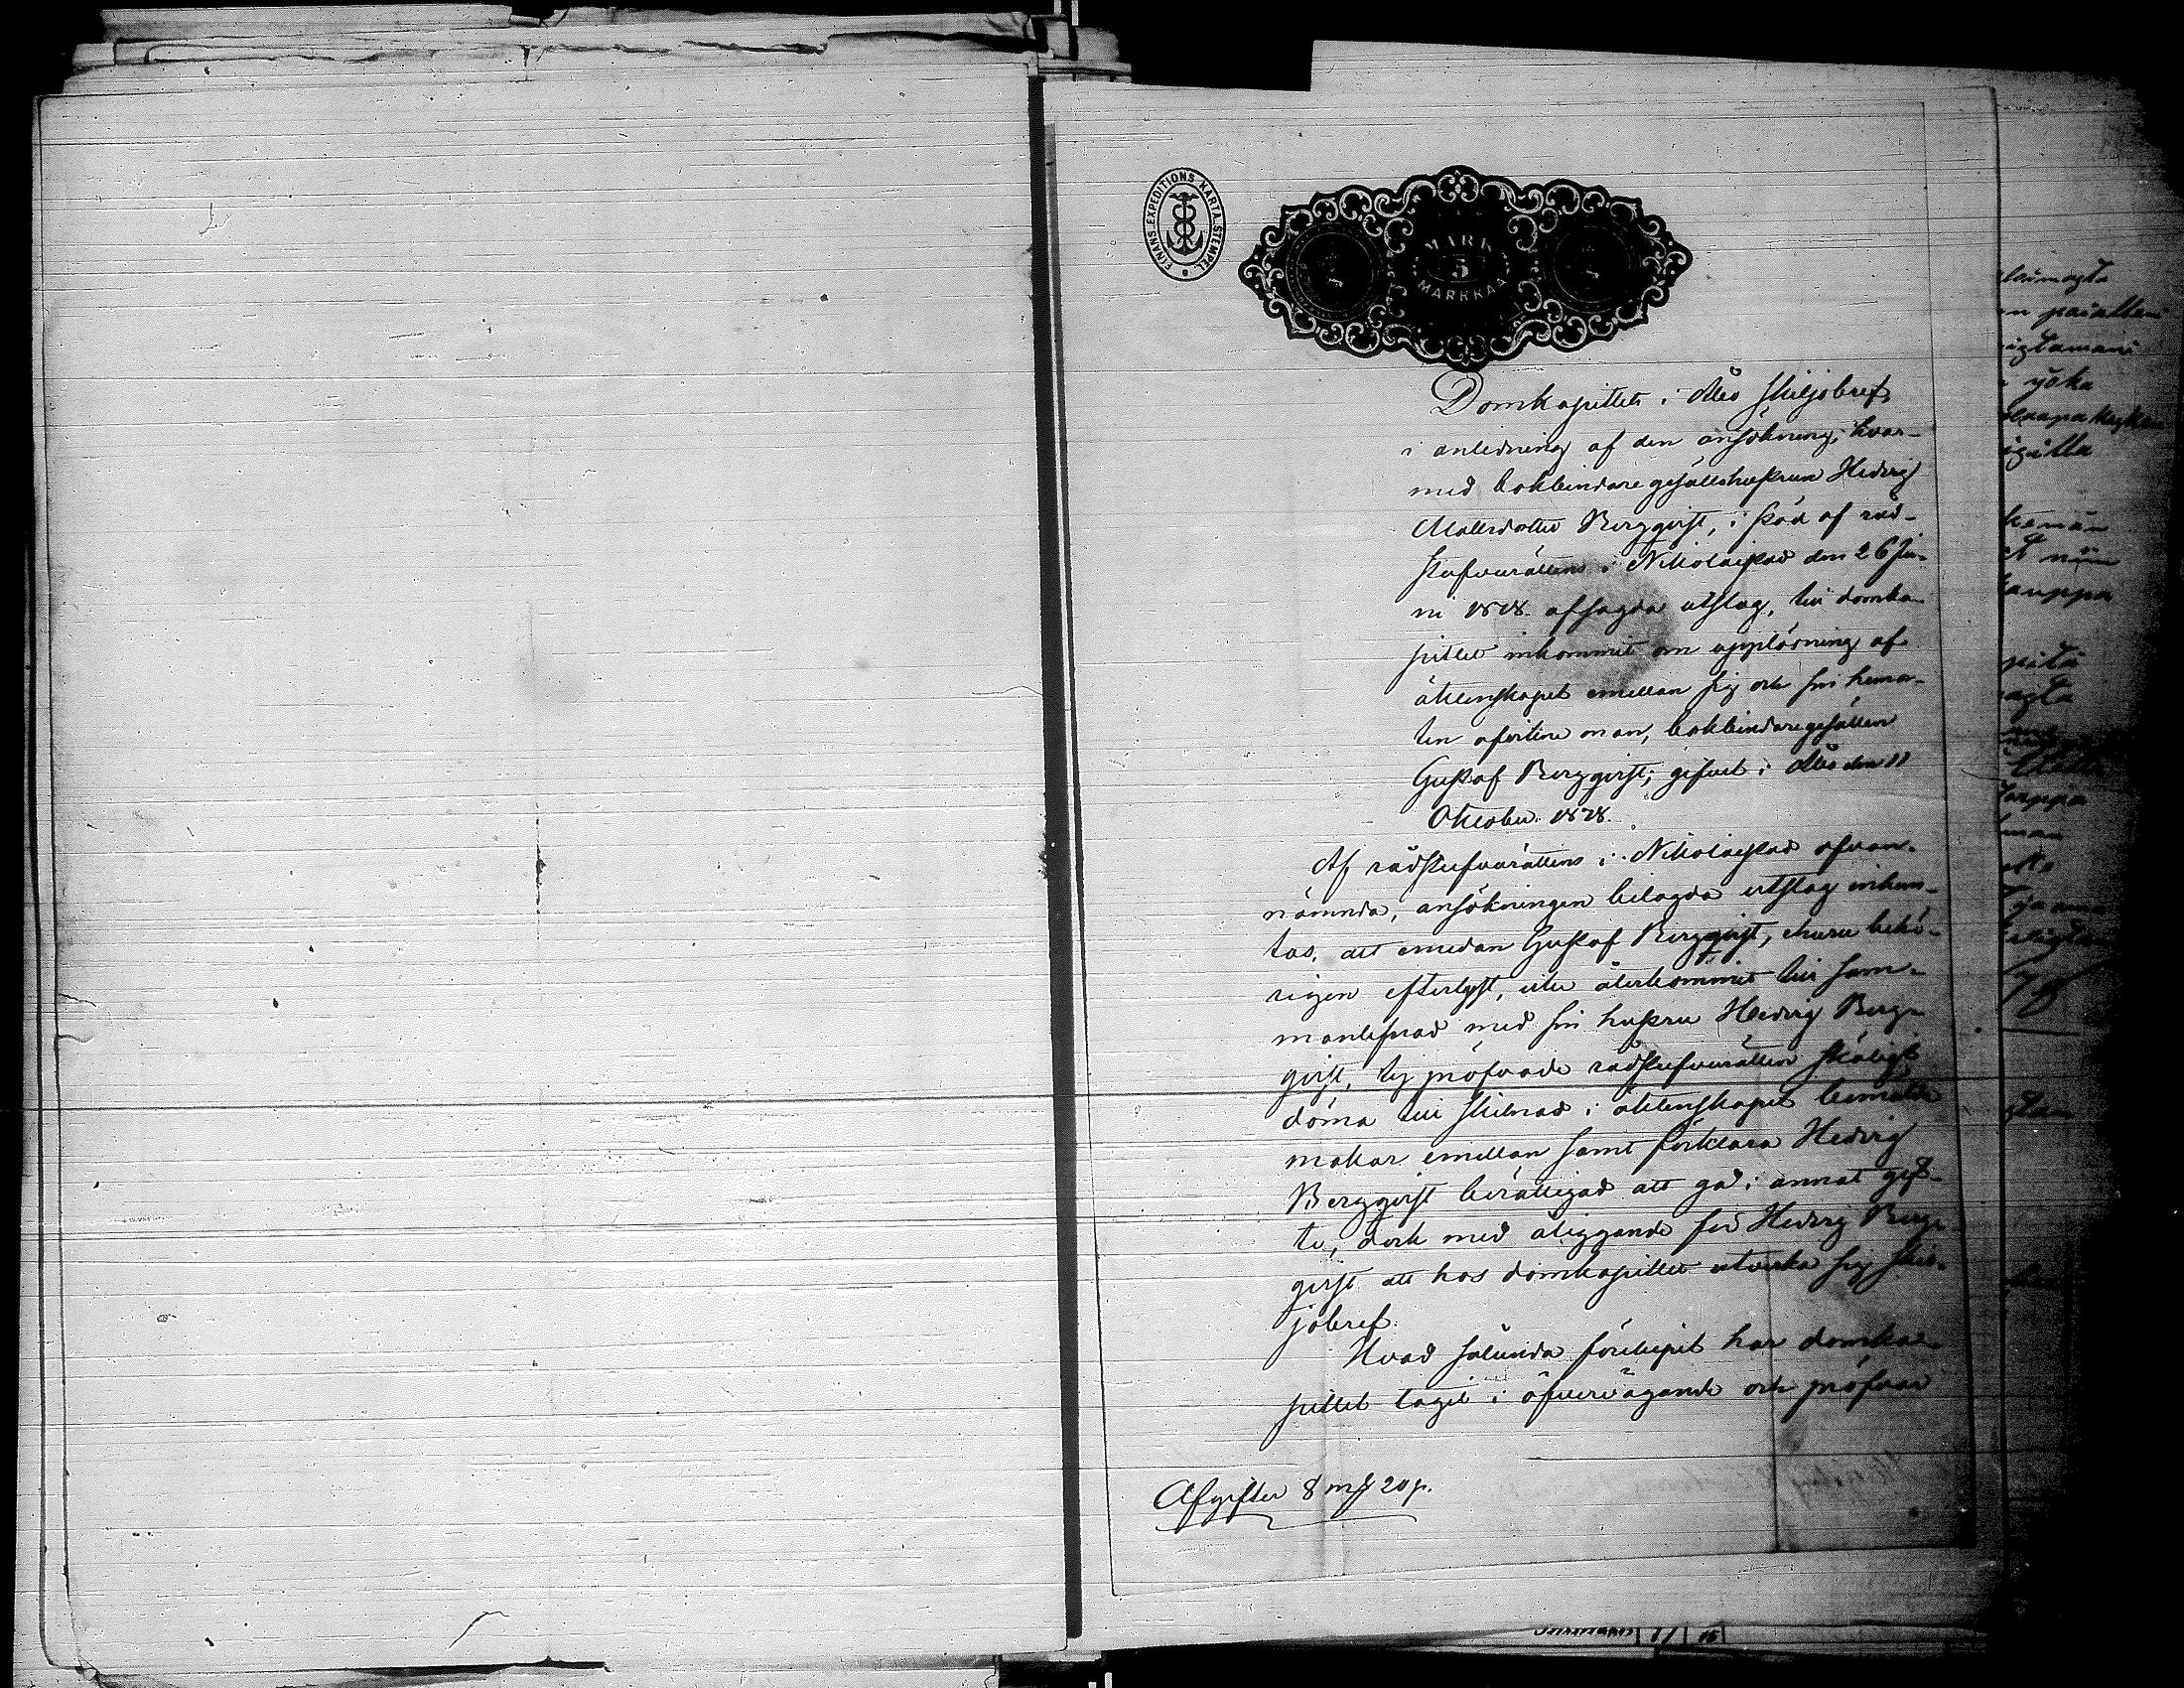 FINANS-EXPEDITIONS KARTA STEMPEL
MARK
5
MARKKAA
Domkapitlets i Åbo skiljobref,
i anledning af den ansökning, hvar-
med bokbindaregesällshustrun Hedvig
Mattsdotter Bergqvist, i stöd af råd-
stufvurättens i Nikolaistad den 26 Ju-
ni 1878 afsagda utslag, till domka-
pitlet inkommit om upplösning af
äktenskapet emellan sig och sin hemor-
ten afvitne man, bokbindaregesällen
Gustaf Bergqvist; gifvet i Åbo den 11
Oktober 1878.
Af rådstufvurättens i Nikolaistad ofvan-
nämnda, ansökningen bilagda utslag inhem-
tas, att emedan Gustaf Bergqvist, ehuru behö-
rigen efterlyst, icke återkommit till sam-
manlefnad med sin hustru Hedvig Berg-
qvist, ty pröfvade rådstufvurätten skäligt
döma till skilnad i äktenskapet bemälde
makar emellan samt förklara Hedvig
Bergqvist berättigad att gå i annat gif-
te, dock med åliggande för Hedvig Berg-
qvist att hos domkapitlet utverka sig skil-
jobref.
Hvad sålunda förelupit har domka-
pitlet tagit i öfvervägande och pröfvar
Afgifter 8 mf 20 p.
yöka
kauppa
torppa